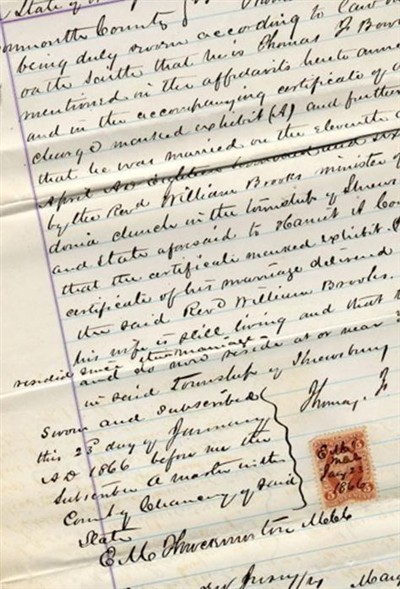 State of
onmouth County
being duly sworn according to law on
oath Saith that he is Thomas F Bow
mentioned in the affidavits hereto anne
and in the accompanying certificate of
charge marked exhibit (A) and further
that he was married on the Eleventh
April AD Eighteen hundred and six
by the Revd William Brooks minister of
donia church in the township of Shrews
and State aforesaid to Hamit A Co
that the certificate marked exhibit
certificate of his marriage delivered
the said Revd William Brooks.
his wife is still living and that
resided since
and do now reside at or near
in said Township of Shrewsbury
Sworn and Subscribed
this 23d day of January
AD 1866 before me the
Subscriber A master in the
Court of Chancery of said
State
Thomas. F
1866
5 5
E M
MCC